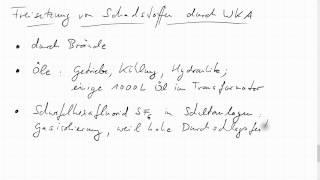 Freisetzung von Schadstoffen durch WKA
• durch Brände
• Öle : Getriebe, Kühlung, Hydraulik;
einige 1000 L Öl im Transformator
• Schwefelhexafluorid SF₆ in Schaltanlagen:
Gasisolierung, weil hohe Durchschlagsfest